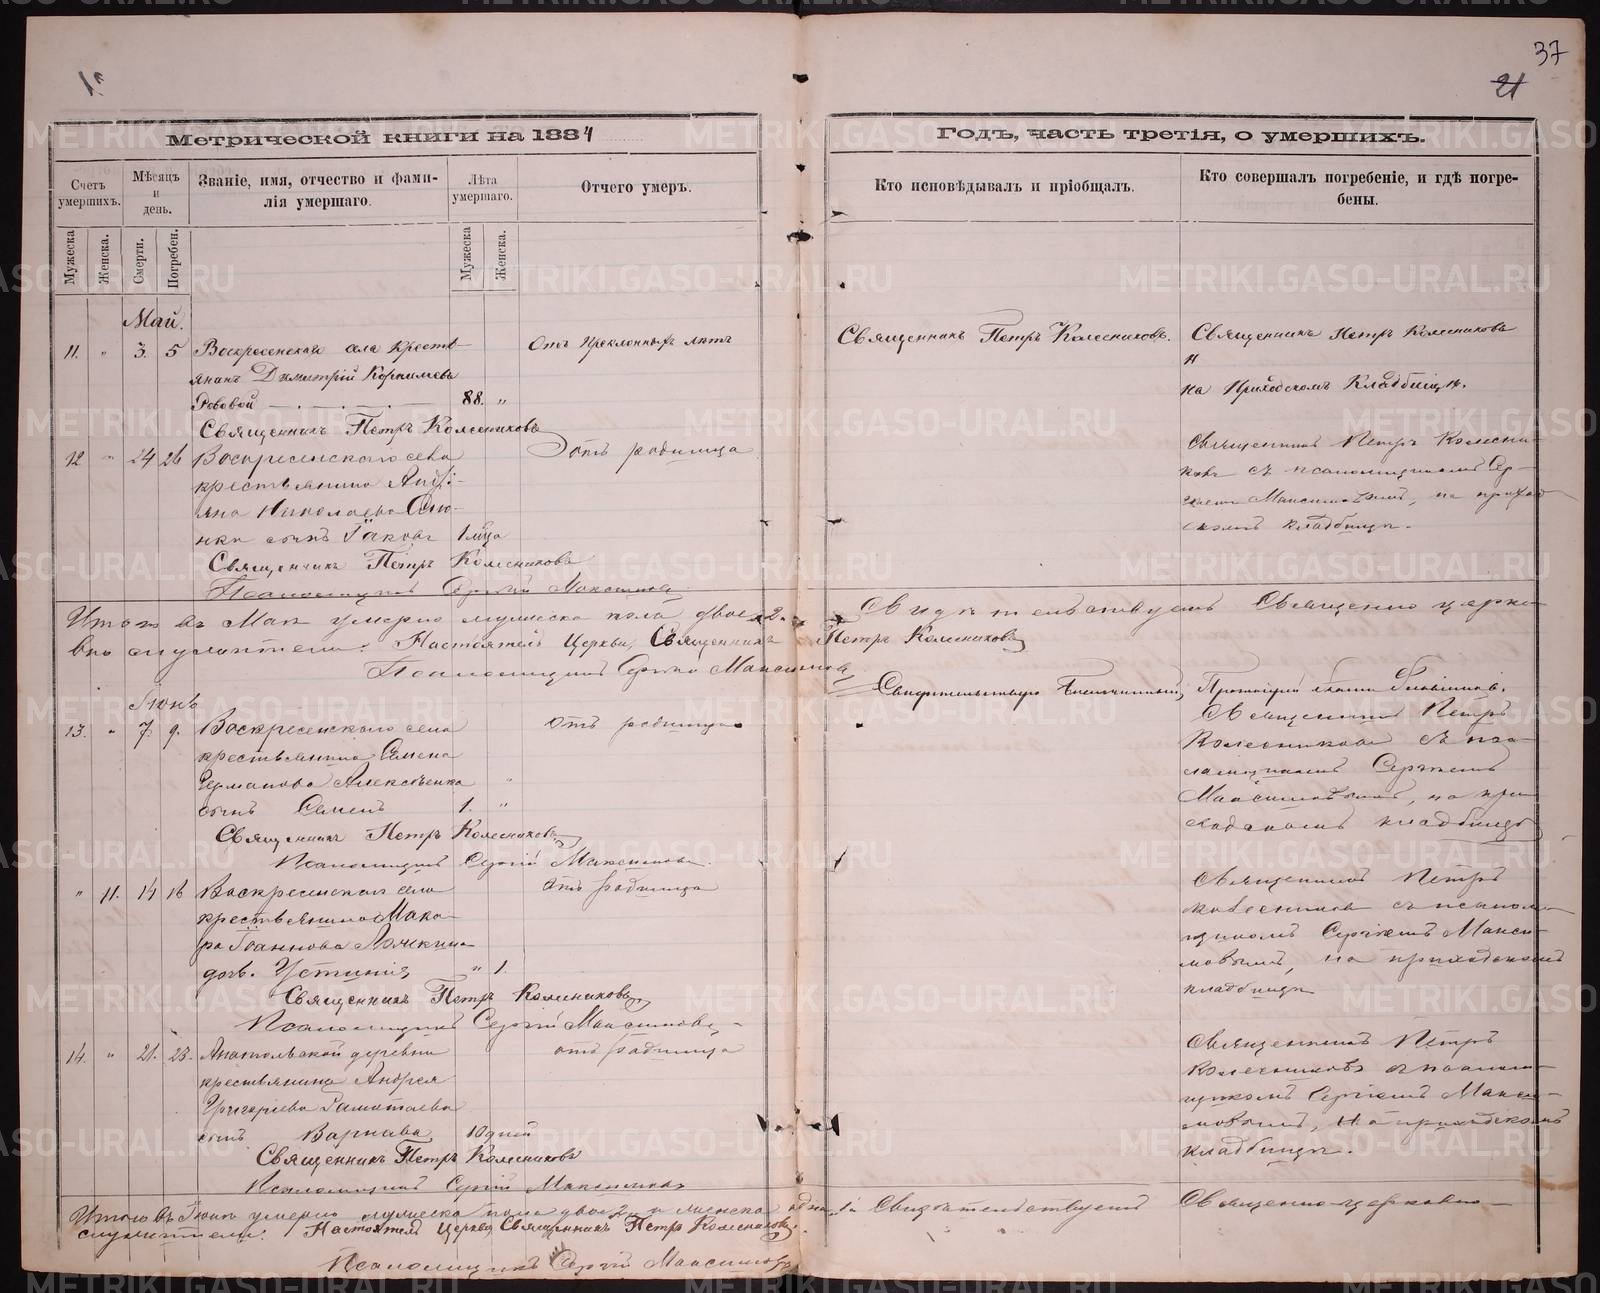 37
21
Метрической книги на 1884
Годъ, часть третія, о умершихъ.
Счетъ умершихъ.
Мѣсяцъ и день.
Званіе, имя, отчество и фами-
лія умершаго.
Лѣта умершаго.
Отчего умеръ.
Кто исповѣдывалъ и пріобщалъ.
Кто совершалъ погребеніе, и гдѣ погре-
бены.
Мужеска
Женска.
Смерти.
Погребен.
Мужеска
Женска.
Май.
11. " 3. 5 Воскресенскаго села Кресть-
янинъ Димитрій Корнильевъ
88. "
Отъ преклонныхъ лѣтъ
Священникъ Петръ Колесниковъ.
Священникъ Петръ Колесниковъ
на Приходскомъ Кладбищѣ.
Священникъ Петръ Колесниковъ
12 " 24 26 Воскресенскаго села
крестьянина
Николаева
сынъ Іаковъ 1 м-ца
отъ родимца
Священникъ Петръ Колесни-
ковъ съ псаломщикомъ Сер-
гіемъ Максимовымъ, на приход-
скомъ кладбищѣ.
Священникъ Петръ Колесниковъ
Псаломщикъ Сергій Максимовъ
Итого въ Маѣ умерло мужеска пола двое 2. Свидѣтельствуемъ Священно церко-
вно служители: Настоятель Церкви, Священникъ Петръ Колесниковъ
Псаломщикъ Сергій Максимовъ
Свидѣтельствую Благочинный, Протоіерей
Іюнь
13. " 7. 9. Воскресенскаго села
крестьянина Семена
Германова Алексѣенка
сынъ Семенъ 1. "
отъ родимца
Священникъ Петръ
Колесниковъ съ пса-
ломщикомъ Сергіемъ
Максимовымъ, на при-
ходскомъ кладбищѣ
Священникъ Петръ Колесниковъ
Псаломщикъ Сергій Максимовъ
" 11. 14 16 Воскресенскаго села
крестьянина Мака-
ра Іоаннова
дочь Устинія " 1.
отъ родимца
Священникъ Петръ
Колесниковъ съ псалом-
щикомъ Сергіемъ Макси-
мовымъ, на приходскомъ
кладбищѣ
Священникъ Петръ Колесниковъ
Псаломщикъ Сергій Максимовъ
14. " 21. 23. Анатольской деревни
крестьянина Андрея
Григорьева
сынъ Варнава 10 дней
отъ родимца
Священникъ Петръ
Колесниковъ съ псалом-
щикомъ Сергіемъ Макси-
мовымъ, на приходскомъ
кладбищѣ.
Священникъ Петръ Колесниковъ
Псаломщикъ Сергій Максимовъ
Итого въ Іюнѣ умерло мужеска пола двое 2 и женска одна 1. Свидѣтельствуемъ Священно-церковно-
служители: Настоятель Церкви, Священникъ Петръ Колесниковъ
Псаломщикъ Сергій Максимовъ
METRIKI.GASO-URAL.RU